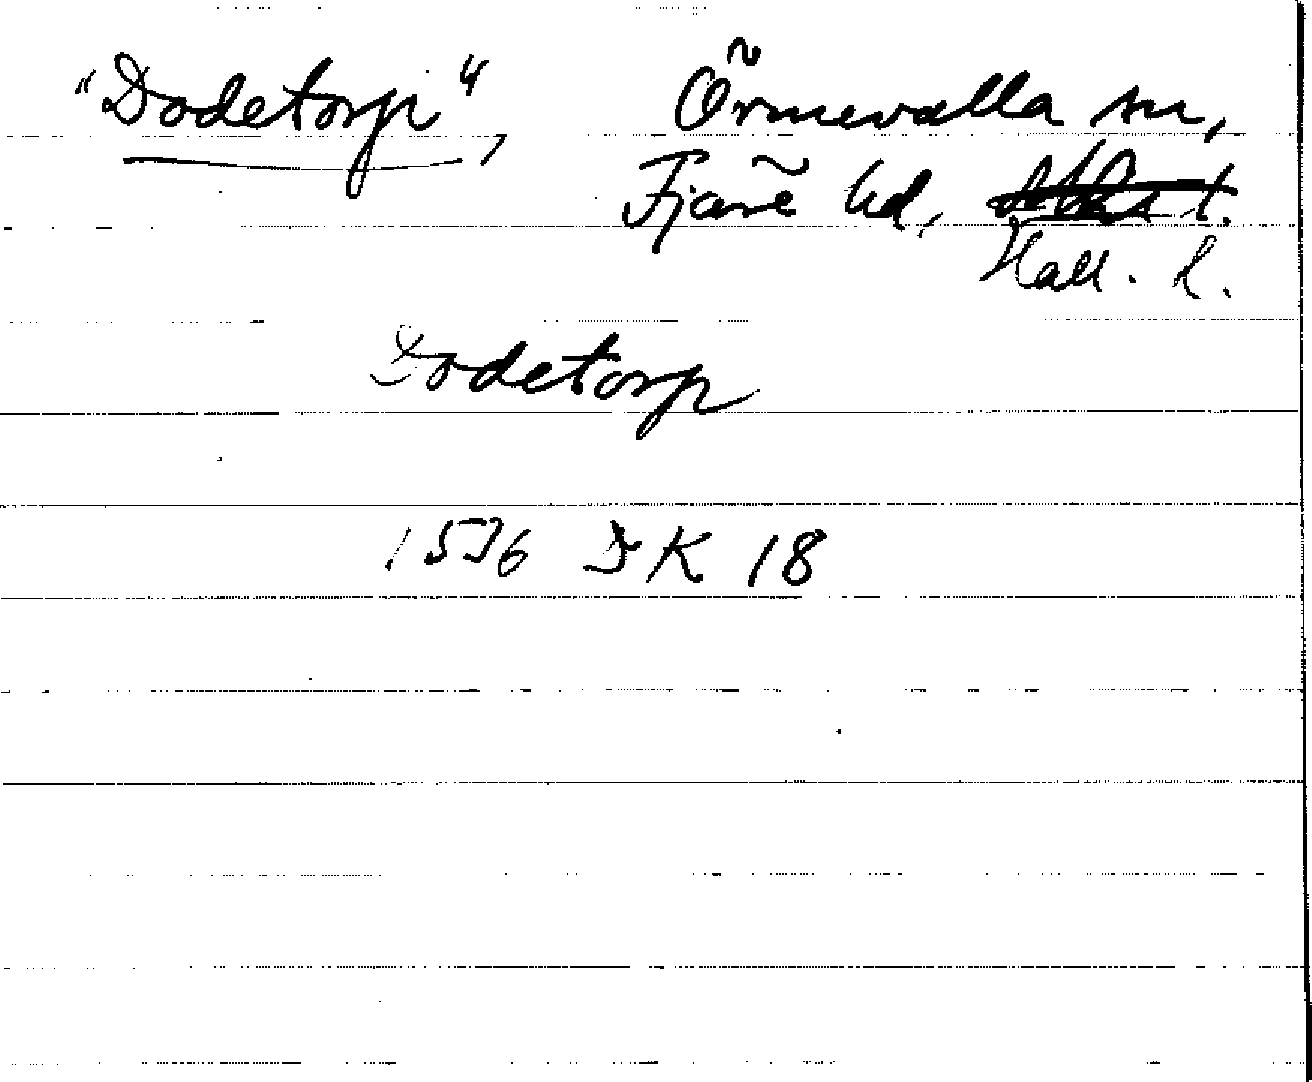 "Dodetorp", Örmevalla sn,
Fjäre hd,
Hall. l.
Dodetorp
1536 DK 18